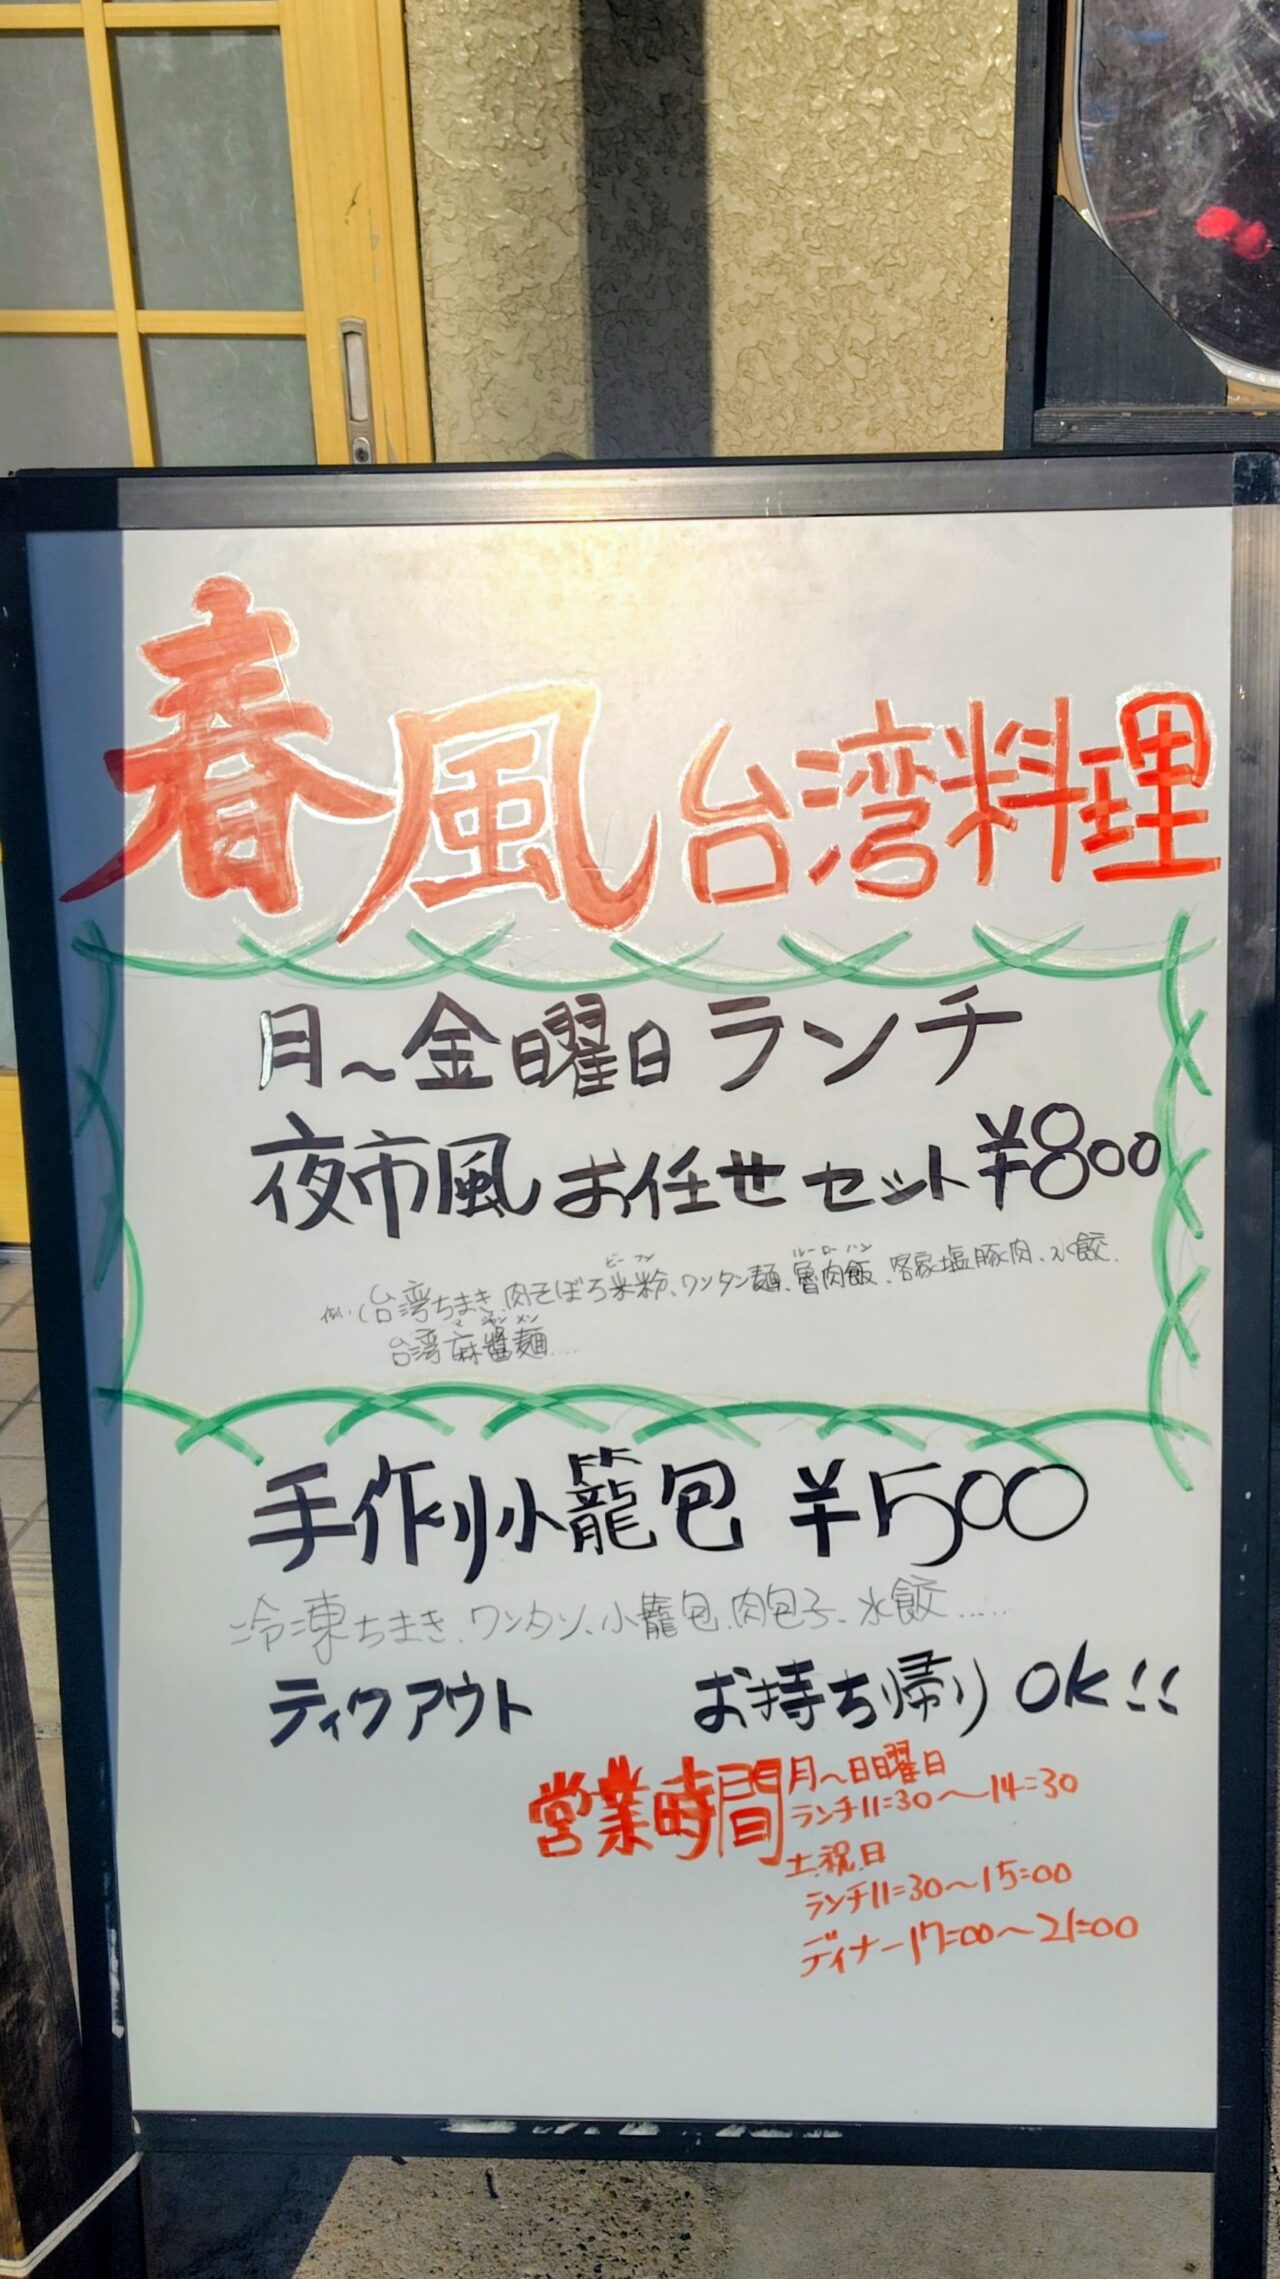 春風台湾料理
月～金曜日ランチ
夜市風お任せセット¥800
ビーフン ルーローハン
例.(台湾ちまき、肉そぼろ米粉、ワンタン麺、魯肉飯、客家塩豚肉、水餃、
マ ジャン メン
台湾麻醬麺....
手作り小籠包 ¥500
冷凍ちまき、ワンタン、小籠包、肉包子、水餃......
ティクアウト お持ち帰り OK!!
営業時間 月～日曜日
ランチ11:30～14:30
土.祝.日
ランチ11:30～15:00
ディナー17:00～21:00